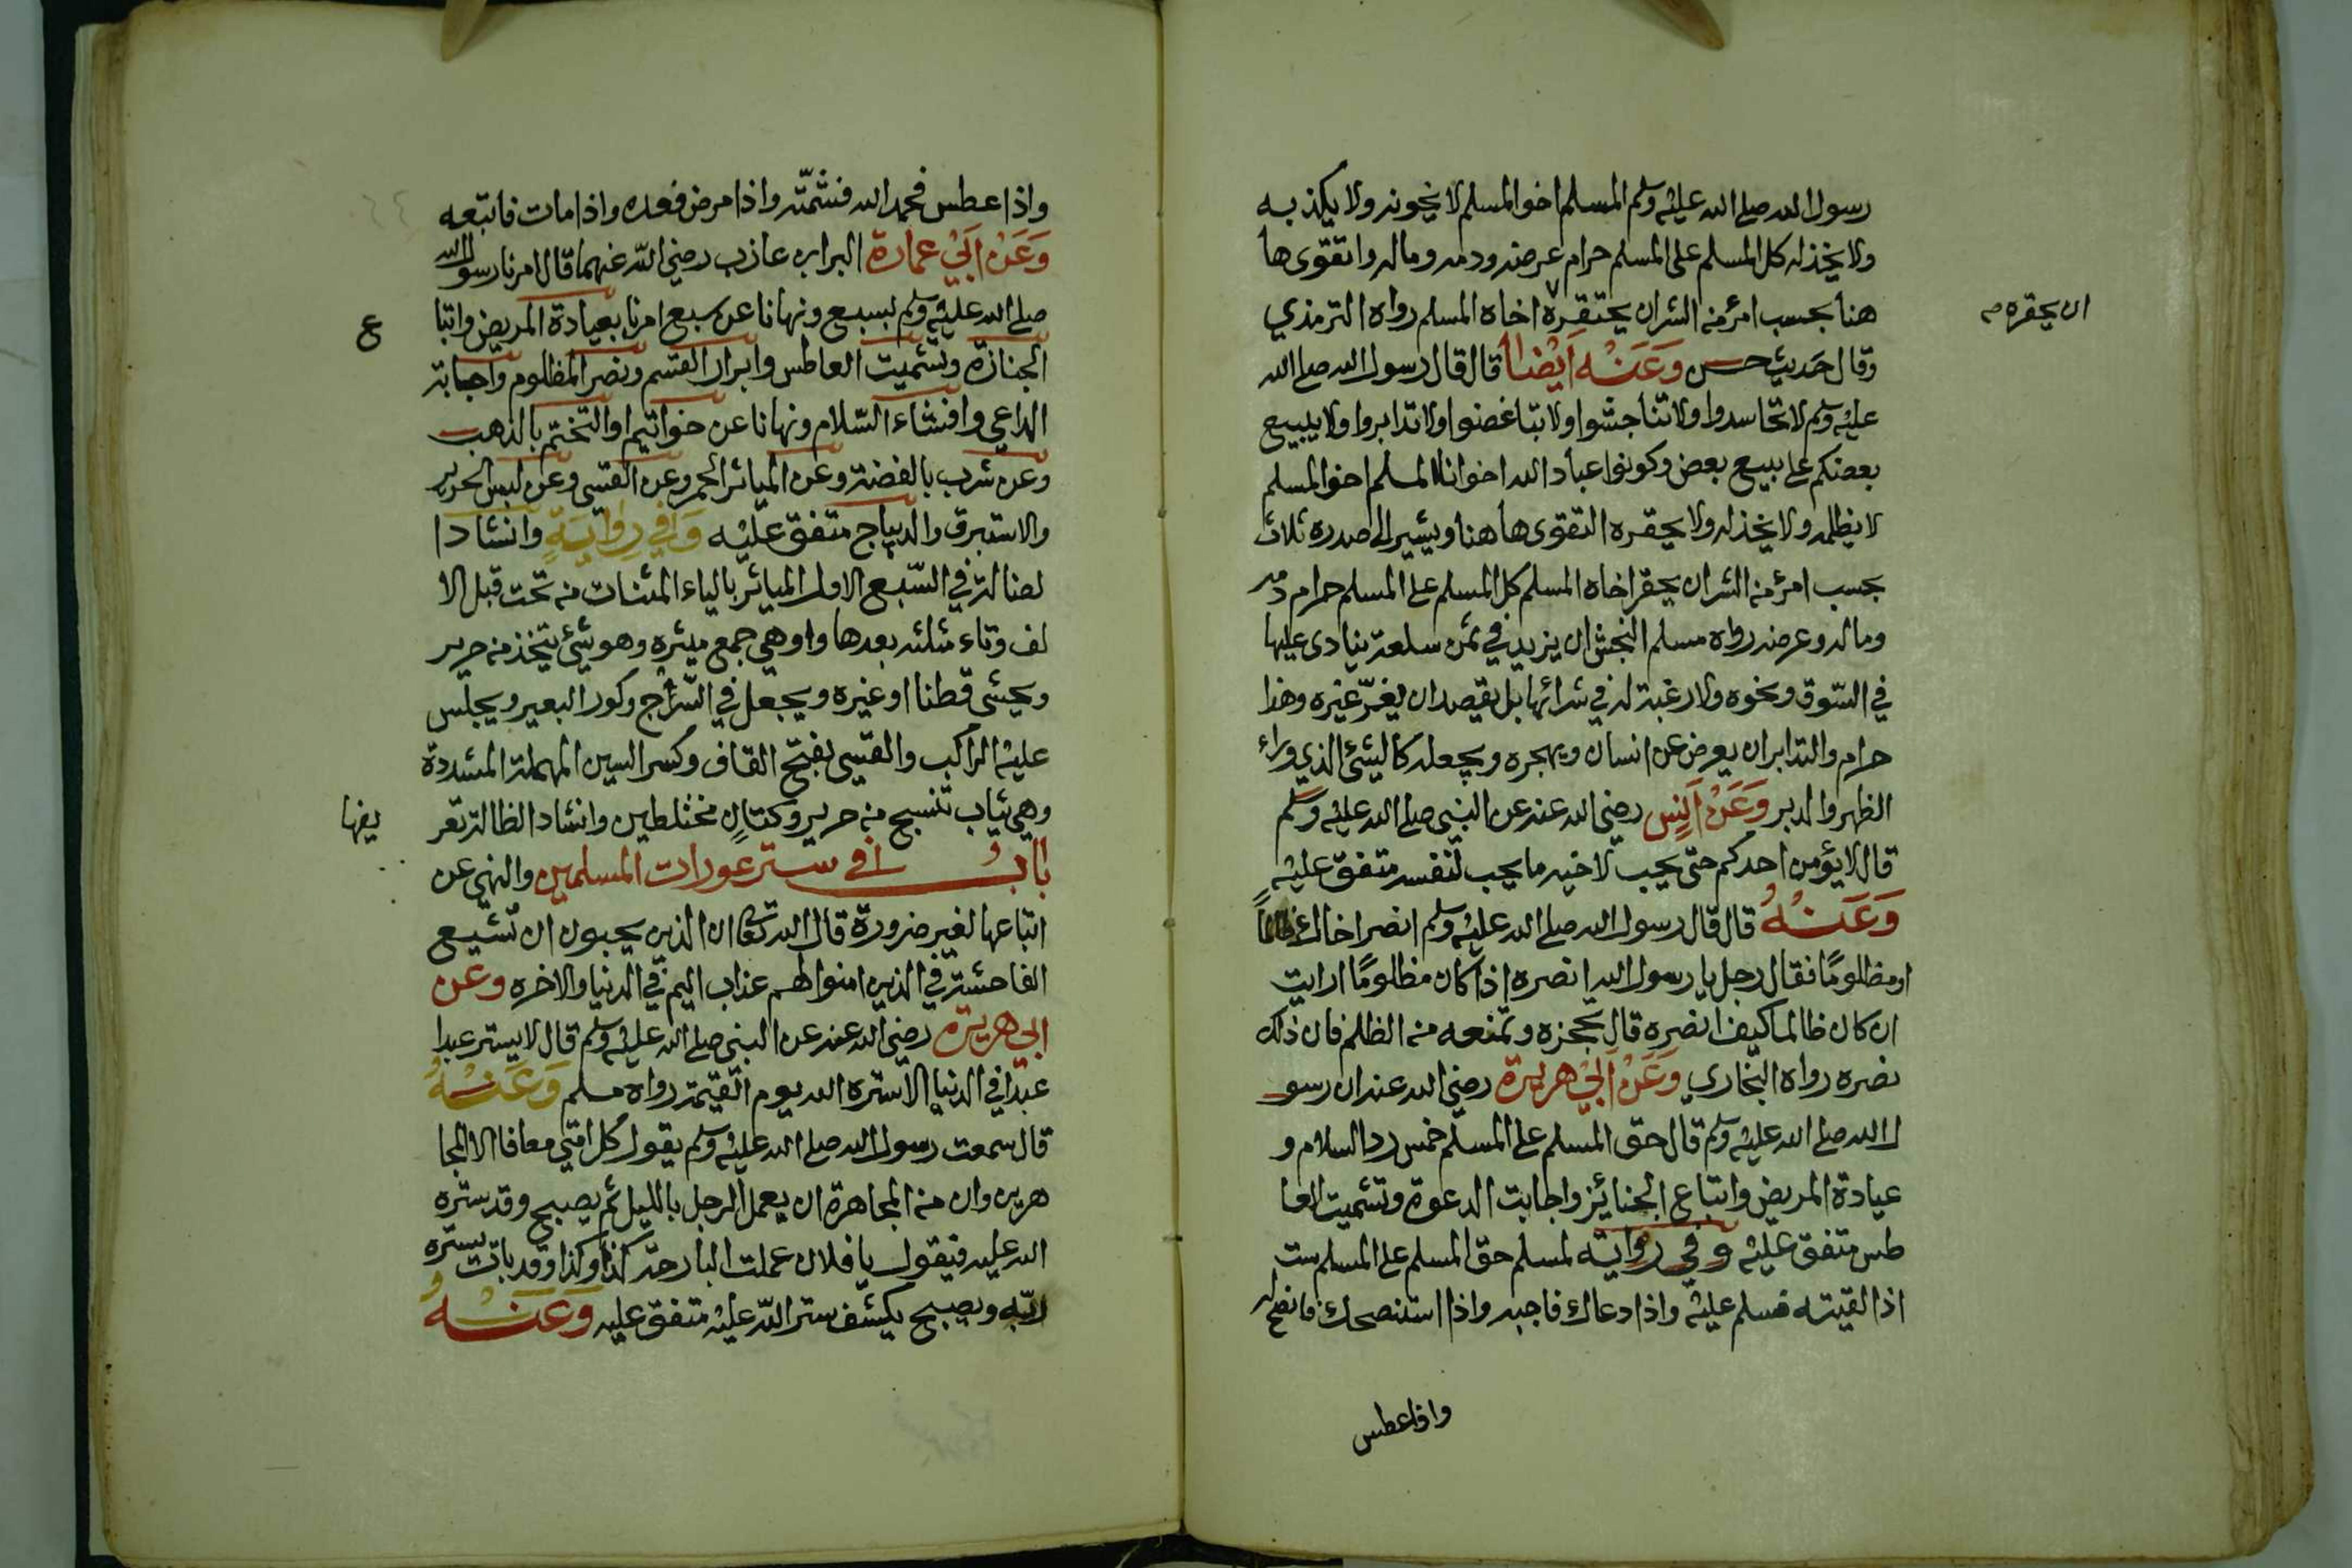 رسول الله صلى الله عليه وسلم المسلم اخو المسلم لا يخونه ولا يكذبه
ولا يخذله كل المسلم على المسلم حرام عرضه ودمه وماله واتقوى ها
هنا بحسب امرئ من الشر ان يحتقره اخاه المسلم رواه الترمذي
ان يحقره صح
وقال حديث حسن وَعَنْه اَيْضاً قال قال رسول الله صلى الله
عليه وسلم لا تحاسدوا ولا تناجشوا ولا تباغضوا ولا تدابروا ولا يبيع
بعضكم على بيع بعض وكونوا عباد الله اخوانا المسلم اخو المسلم
لا يظلمه ولا يخذله ولا يحقره التقوى ها هنا ويشير الى صدره ثلاث
بحسب امرئ من الشر ان يحقر اخاه المسلم كل المسلم على المسلم حرام دمه
وماله وعرضه رواه مسلم النجش ان يزيد في ثمن سلعة ينادى عليها
في السّوق ونحوه ولا رغبة له في شرائها بل يقصد ان يغرّ غيره وهذا
حرام والتدابر ان يعرض عن انسان ويهجره ويجعله كاليشئ الذي وراء
الظهر والدبر وَعَنْ اَنَسٍ رضي الله عنه عن النبي صلى الله عليه وسلم
قال لا يؤمن احدكم حتى يحب لاخيه ما يحب لنفسه متفق عليه
وَعَنْهُ قال قال رسول الله صلى الله عليه وسلم انصر اخاك ظالماً
او مظلومًا فقال رجل يا رسول الله انصره اذا كان مظلومًا ارايت
ان كان ظالما كيف انصره قال تحجزه وتمنعه من الظلم فان ذلك
نصره رواه البخاري وَعَنْ اَبِيْ هريرة رضي الله عنه ان رسو
ل الله صلى الله عليه وسلم قال حق المسلم على المسلم خمس رد السلام و
عيادة المريض واتباع الجنائز واجابت الدعوة وتشميت العا
طس متفق عليه وفي رواية لمسلم حق المسلم على المسلم ست
اذا لقيته فسلم عليه واذا دعاك فاجبه واذا استنصحك فانصح له
واذا عطس
واذا عطس فحمد الله فشمّته واذا مرض فعده واذا مات فاتبعه
وَعَنْ اَبَيْ عمارة البراء بن عازب رضي اللّه عنهما قال امرنا رسول الله
صلى الله عليه وسلم بسبع ونهانا عن سبع امرنا بعيادة المريض واتبا
ع
الجنازة وتشميت العاطس وابرار القسم ونصر المظلوم واجابة
الداعي وافشاء السّلام ونهانا عن خواتيم او التختم بالذهب
وعن شرب بالفضة وعن المياثر الحمر وعن القسى وعن لبس الحرير
والاستبرق والديباج متفق عليه وَفِي رِوَايَةٍ وانشاد ا
لضالة في السّبع الاول المياثر بالياء المثنات من تحت قبل الا
لف وثاء مثلثه بعدها واو هي جمع ميثره وهو شئ يتخذ من حرير
ويحشى قطنا او غيره ويجعل في السّراج وكور البعير ويجلس
عليه الراكب والقسى بفتح القاف وكسر السين المهملة المشددة
وهي ثياب تنسج من حرير وكتانٍ مختلطين وانشاد الظالة تعر
يفها
بابُ في ستر عورات المسلمين والنهي عن
اتباعها لغير ضرورة قال الله تعالى ان الذين يحبون ان تشيع
الفاحشة في الذين امنوا لهم عذاب اليم في الدنيا والاخره وعن
ابي هريرة رضي الله عنه عن النبي صلى الله عليه وسلم قال لا يستر عبدا
عبدا في الدنيا الا ستره الله يوم القيمة رواه مسلم وَعَنْهُ
قال سمعت رسول الله صلى الله عليه وسلم يقول كل امتي معافا الا المجا
هرين وان من المجاهرة ان يعمل الرجل بالليل ثم يصبح وقد ستره
الله عليه فيقول يا فلان عملت البارحة كذا وكذا وقد بات يستره
ربّه ويصبح يكشف ستر اللّه عليه متفق عليه وَعَنْهُ